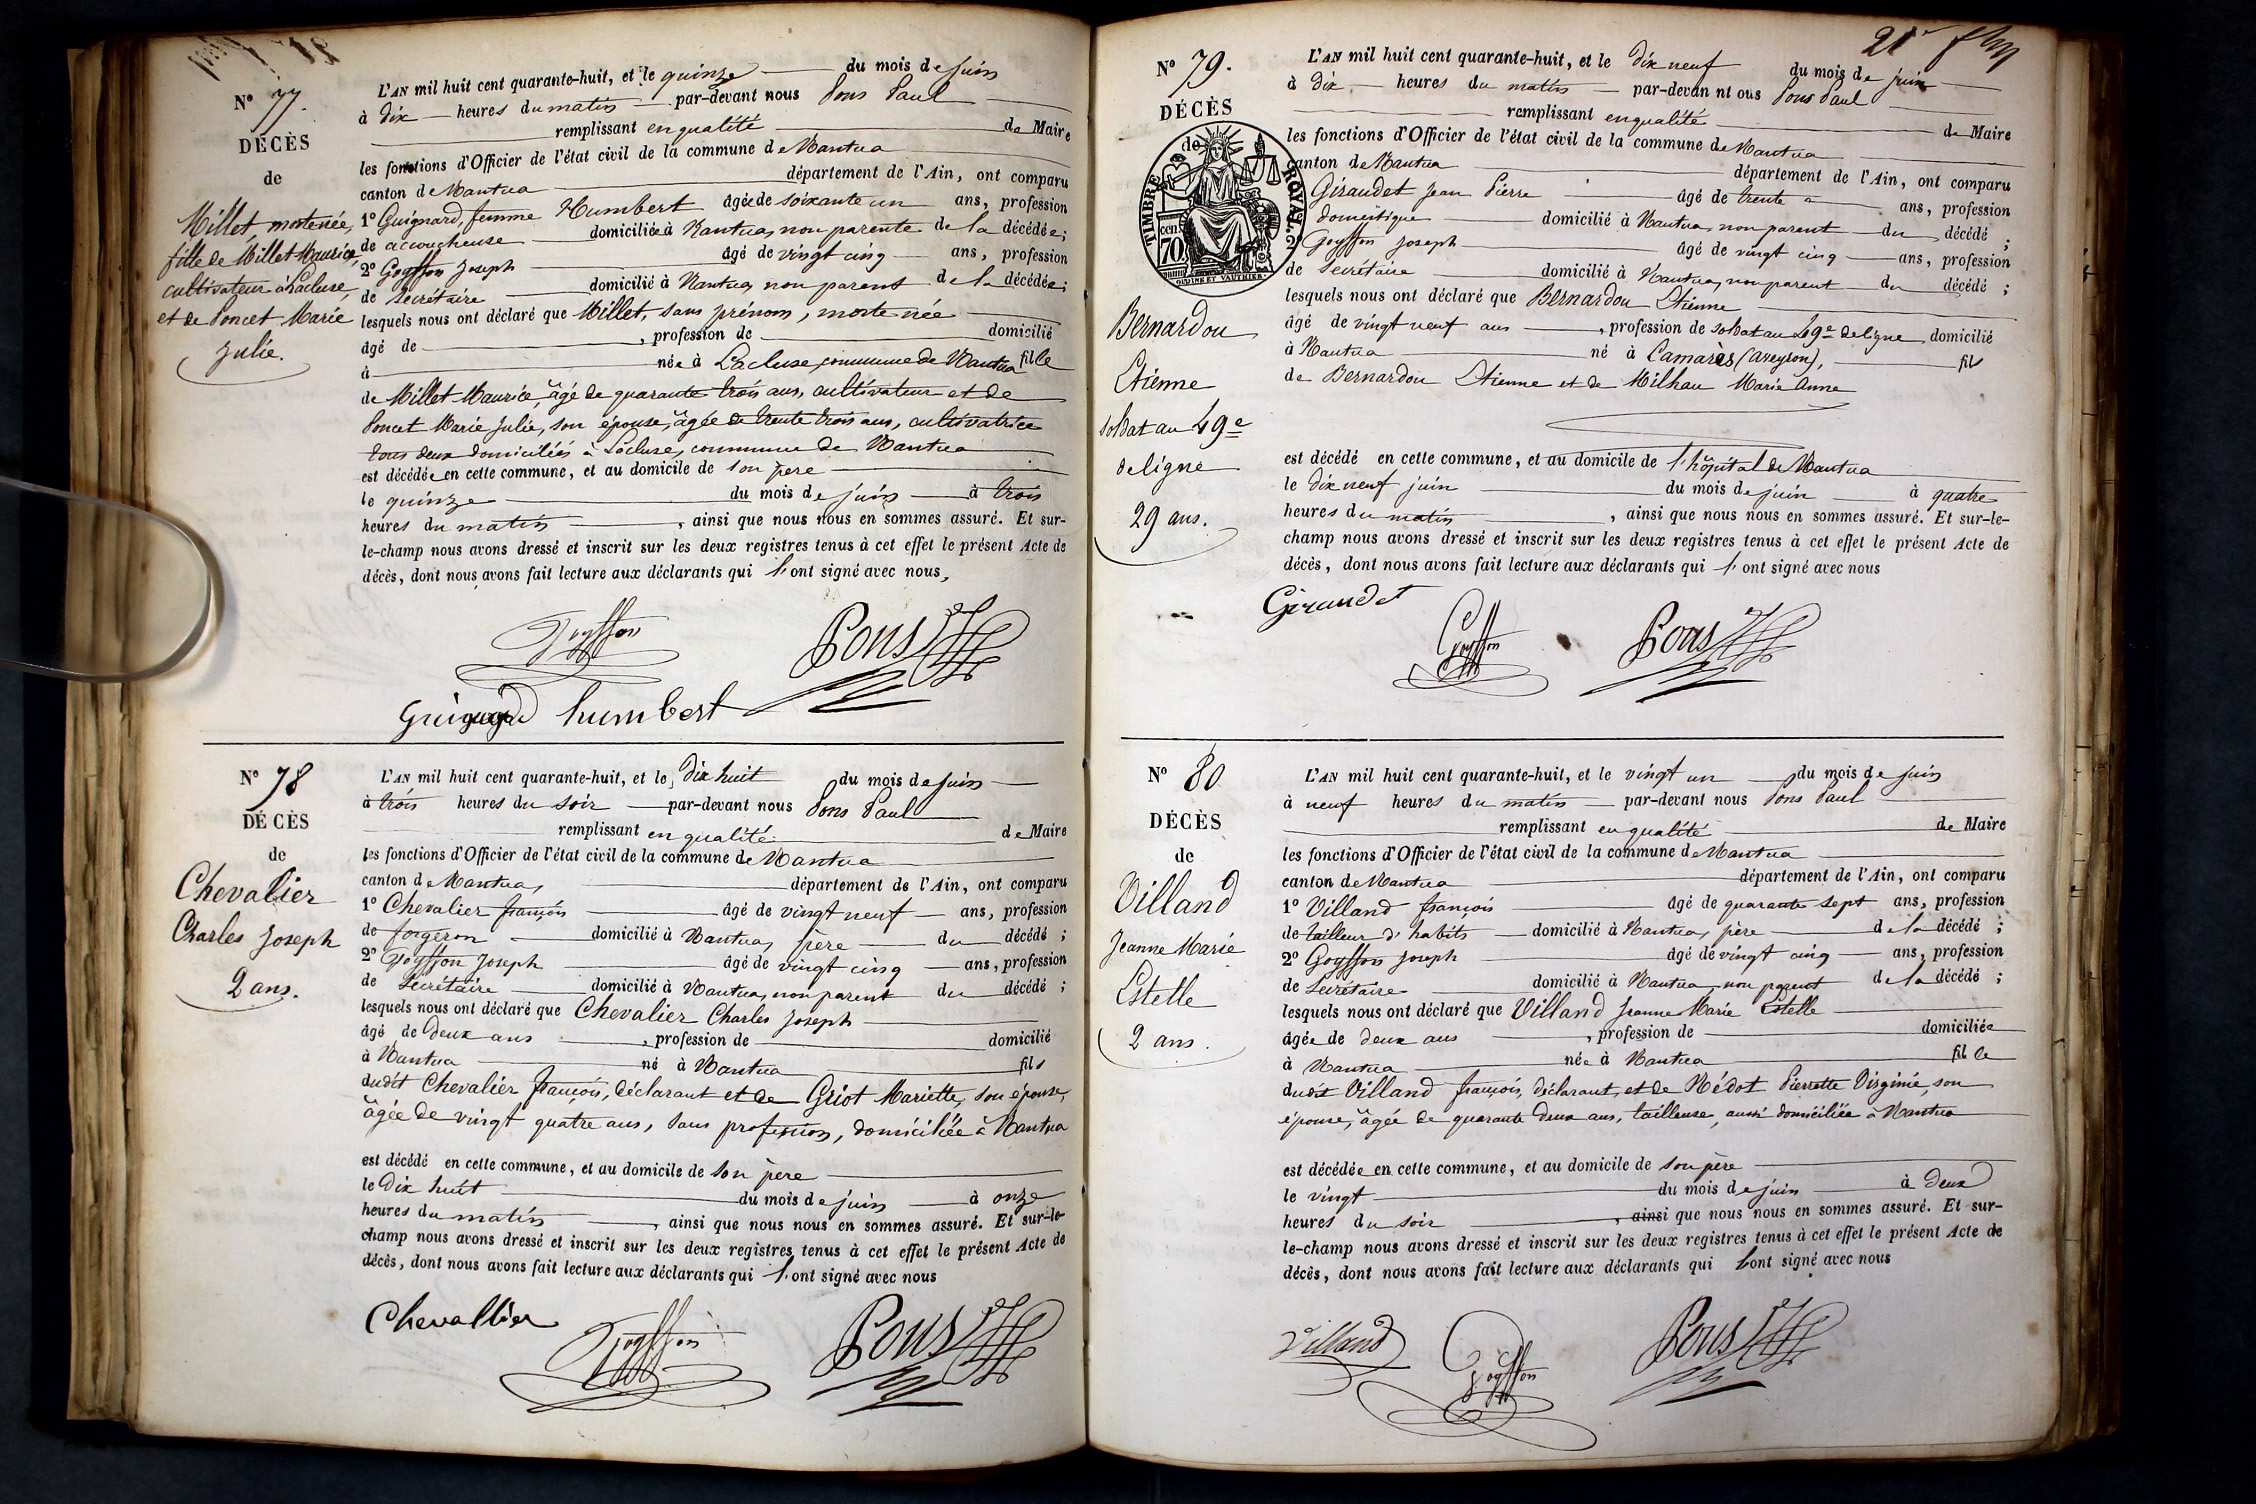 N° 77.
DÉCÈS
de
Millet mortenée,
fille de Millet Maurice,
cultivateur à Lacluse,
et de Poncet Marie
Julie.
L'AN mil huit cent quarante-huit, et le quinze du mois de juin
à dix heures du matin par-devant nous Pons Paul
remplissant en qualité de Maire
les fonctions d'Officier de l'état civil de la commune de Nantua
canton de Nantua département de l'Ain, ont comparu
1° Guignard, femme Humbert âgée de soixante un ans, profession
de accoucheuse domiciliée à Nantua, non parente de la décédée;
2° Goyffon Joseph âgé de vingt cinq ans, profession
de secrétaire domicilié à Nantua, non parent de la décédée;
lesquels nous ont déclaré que Millet, sans prénom, morte née
âgé de , profession de domicilié
à née à Lacluse, commune de Nantua fille
de Millet Maurice, âgé de quarante trois ans, cultivateur et de
Poncet Marie Julie, son épouse, âgée de trente trois ans, cultivatrice
tous deux domiciliés à Lacluse, commune de Nantua
est décédée en cette commune, et au domicile de son père
le quinze du mois de juin à trois
heures du matin , ainsi que nous nous en sommes assuré. Et sur-
le-champ nous avons dressé et inscrit sur les deux registres tenus à cet effet le présent Acte de
décès, dont nous avons fait lecture aux déclarants qui l'ont signé avec nous,
Goyffon Pons
Guignard humbert
N° 78
DÉCÈS
de
Chevalier
Charles Joseph
2 ans.
L'AN mil huit cent quarante-huit, et le dix huit du mois de juin
à trois heures du soir par-devant nous Pons Paul
remplissant en qualité de Maire
les fonctions d'Officier de l'état civil de la commune de Nantua
canton de Nantua, département de l'Ain, ont comparu
1° Chevalier françois âgé de vingt neuf ans, profession
de forgeron domicilié à Nantua, père du décédé;
2° Goyffon Joseph âgé de vingt cinq ans, profession
de secrétaire domicilié à Nantua, non parent du décédé;
lesquels nous ont déclaré que Chevalier Charles Joseph
âgé de deux ans , profession de domicilié
à Nantua né à Nantua fils
dudit Chevalier françois, déclarant et de Griot Mariette, son épouse,
âgée de vingt quatre ans, sans profession, domiciliée à Nantua
est décédé en cette commune, et au domicile de son père
le dix huit du mois de juin à onze
heures du matin , ainsi que nous nous en sommes assuré. Et sur-le-
champ nous avons dressé et inscrit sur les deux registres tenus à cet effet le présent Acte de
décès, dont nous avons fait lecture aux déclarants qui l'ont signé avec nous
Chevallier Goyffon Pons
N° 79.
DÉCÈS
de
TIMBRE ROYAL
70 cen
Bernardou
Etienne
soldat au 49e
de ligne
29 ans.
L'AN mil huit cent quarante-huit, et le dix neuf du mois de juin
à dix heures du matin par-devan nt ous Pons Paul
remplissant en qualité de Maire
les fonctions d'Officier de l'état civil de la commune de Nantua
canton de Nantua département de l'Ain, ont comparu
Giraudet Jean Pierre âgé de trente ans, profession
domestique domicilié à Nantua, non parent du décédé;
2° Goyffon Joseph âgé de vingt cinq ans, profession
de secrétaire domicilié à Nantua, non parent du décédé;
lesquels nous ont déclaré que Bernardou Etienne
âgé de vingt neuf ans , profession de soldat au 49e de ligne domicilié
à Nantua né à Camarès (aveyron), fils
de Bernardou Etienne et de Milhau Marie Anne
est décédé en cette commune, et au domicile de l'hôpital de Nantua
le dix neuf juin du mois de juin à quatre
heures du matin , ainsi que nous nous en sommes assuré. Et sur-le-
champ nous avons dressé et inscrit sur les deux registres tenus à cet effet le présent Acte de
décès, dont nous avons fait lecture aux déclarants qui l'ont signé avec nous
Giraudet Goyffon Pons
N° 80
DÉCÈS
de
Villand
Jeanne Marie
Estelle
2 ans.
L'AN mil huit cent quarante-huit, et le vingt un du mois de juin
à neuf heures du matin par-devant nous Pons Paul
remplissant en qualité de Maire
les fonctions d'Officier de l'état civil de la commune de Nantua
canton de Nantua département de l'Ain, ont comparu
1° Villand françois âgé de quarante sept ans, profession
de tailleur d'habits domicilié à Nantua, père de la décédé;
2° Goyffon Joseph âgé de vingt cinq ans, profession
de secrétaire domicilié à Nantua, non parent de la décédé;
lesquels nous ont déclaré que Villand Jeanne Marie Estelle
âgée de deux ans , profession de domiciliée
à Nantua née à Nantua fille
dudit Villand françois, déclarant, et de Médot Pierrette Virginie, son
épouse, âgée de quarante deux ans, tailleuse, aussi domiciliée à Nantua
est décédée en cette commune, et au domicile de son père
le vingt du mois de juin à deux
heures du soir , ainsi que nous nous en sommes assuré. Et sur-
le-champ nous avons dressé et inscrit sur les deux registres tenus à cet effet le présent Acte de
décès, dont nous avons fait lecture aux déclarants qui l'ont signé avec nous
Villand Goyffon Pons